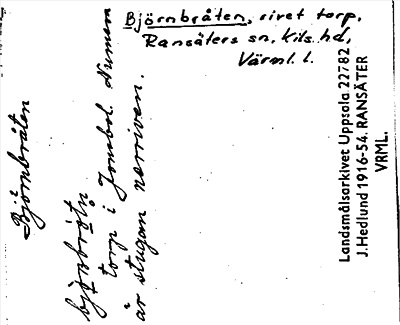 Björnbråten, rivet torp,
Ransäters sn, Kils hd,
Värml. l.
Björnbråten
torp i Jonsbol. Numera
är stugan nerriven.
Landsmålsarkivet Uppsala 22782
J. Hedlund 1916-54. RANSÄTER
VRML.